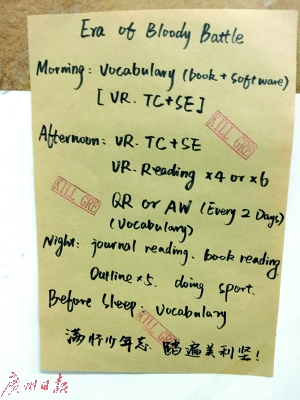 Era of Bloody Battle
Morning: Vocabulary (book + software)
[VR. TC+SE]
KILL GRE
Afternoon: VR. TC+SE
VR. Reading ×4 or ×6
KILL GRE
QR or AW (Every 2 Days)
(Vocabulary)
Night: journal reading. book reading
Outline×5. doing sport.
Before Sleep: Vocabulary
KILL GRE
满怀少年志 踏遍美利坚!
广州日报